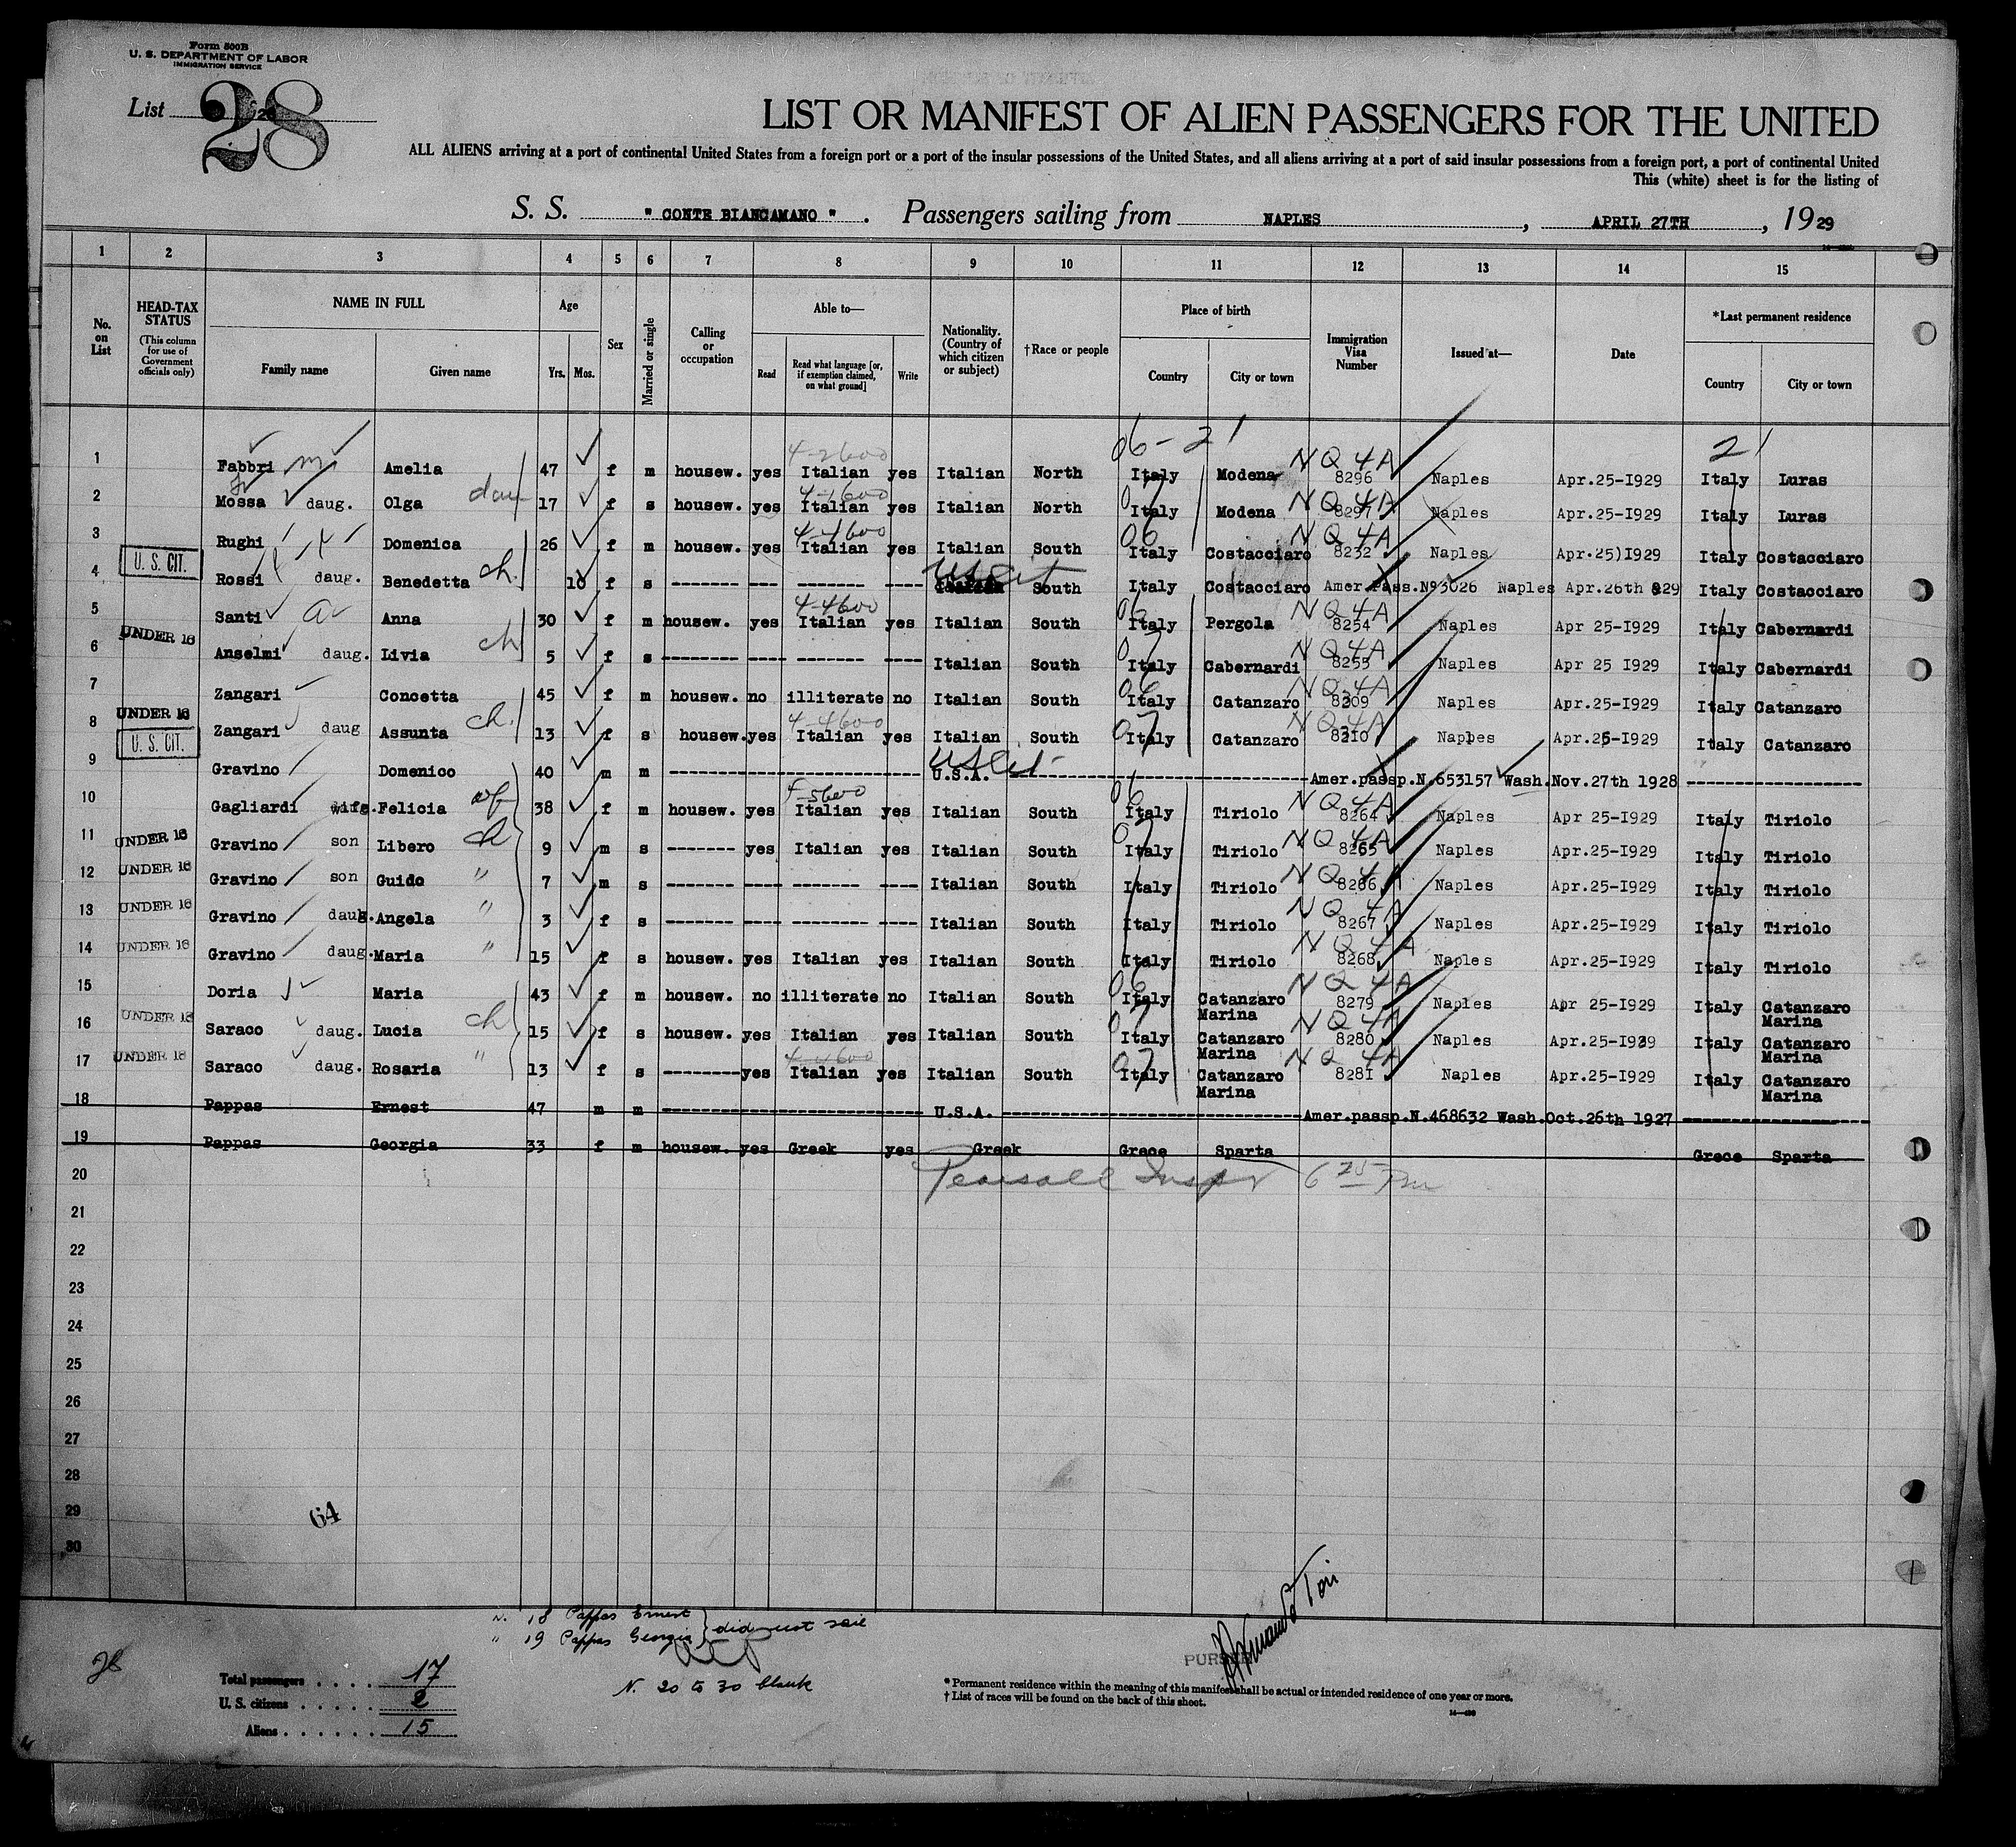 Form 500B
U. S. DEPARTMENT OF LABOR
IMMIGRATION SERVICE
List 28
LIST OR MANIFEST OF ALIEN PASSENGERS FOR THE UNITED
ALL ALIENS arriving at a port of continental United States from a foreign port or a port of the insular possessions of the United States, and all aliens arriving at a port of said insular possessions from a foreign port, a port of continental United
This (white) sheet is for the listing of
S. S. " CONTE BIANCAMANO ". Passengers sailing from NAPLES, APRIL 27TH, 1929
1 2 3 4 5 6 7 8 9 10 11 12 13 14 15
No. on List
HEAD-TAX STATUS
(This column for use of Government officials only)
NAME IN FULL
Family name Given name
Age
Yrs. Mos.
Sex
Married or single
Calling or occupation
Able to—
Read Read what language [or, if exemption claimed, on what ground] Write
Nationality. (Country of which citizen or subject)
†Race or people
Place of birth
Country City or town
Immigration Visa Number
Issued at—
Date
*Last permanent residence
Country City or town
06-21 21
1 Fabbri Amelia 47 f m housew. yes 4-2600 Italian yes Italian North Italy Modena NQ 4A 8296 Naples Apr.25-I929 Italy Luras
2 Mossa daug. Olga dau 17 f s housew. yes 4-1600 Italian yes Italian North 07 Italy Modena NQ 4A 8297 Naples Apr.25-I929 Italy Luras
3 Rughi Domenica 26 f m housew. yes 4-4600 Italian yes Italian South 06 Italy Costacciaro NQ 4A 8232 Naples Apr.25)I929 Italy Costacciaro
4 U. S. CIT. Rossi daug. Benedetta ch. 10 f s ------- --- ------- ---- US Cit South Italy Costacciaro Amer.Pass.Nº3026 Naples Apr.26th 929 Italy Costacciaro
5 Santi Anna 30 f m housew. yes 4-4600 Italian yes Italian South 06 Italy Pergola NQ 4A 8254 Naples Apr 25-I929 Italy Cabernardi
6 UNDER 16 Anselmi daug. Livia ch 5 f s -------- ---- ------- ---- Italian South 07 Italy Cabernardi NQ 4A 8255 Naples Apr 25 I929 Italy Cabernardi
7 Zangari Concetta 45 f m housew. no illiterate no Italian South 06 Italy Catanzaro NQ 4A 8209 Naples Apr.25-I929 Italy Catanzaro
8 UNDER 16 Zangari daug Assunta ch. 13 f s housew. yes 4-4600 Italian yes Italian South 07 Italy Catanzaro NQ 4A 8210 Naples Apr.25-I929 Italy Catanzaro
9 U. S. CIT. Gravino Domenico 40 m m ---------- U.S.A. US Cit ---------- Amer.passp.N.653157 Wash.Nov.27th 1928 ----------
10 Gagliardi wife. Felicia wf 38 f m housew. yes F-5600 Italian yes Italian South 06 Italy Tiriolo NQ 4A 8264 Naples Apr 25-I929 Italy Tiriolo
11 UNDER 16 Gravino son Libero ch 9 m s ------- yes Italian yes Italian South 07 Italy Tiriolo NQ 4A 8265 Naples Apr.25-I929 Italy Tiriolo
12 UNDER 16 Gravino son Guido " 7 m s ------- ---- ------- ---- Italian South Italy Tiriolo NQ 4A 8266 Naples Apr.25-I929 Italy Tiriolo
13 UNDER 16 Gravino daug. Angela " 3 f s ------- ---- ------- ---- Italian South Italy Tiriolo NQ 4A 8267 Naples Apr.25-I929 Italy Tiriolo
14 UNDER 16 Gravino daug. Maria " 15 f s housew. yes Italian yes Italian South Italy Tiriolo NQ 4A 8268 Naples Apr.25-I929 Italy Tiriolo
15 Doria Maria 43 f m housew. no illiterate no Italian South 06 Italy Catanzaro Marina NQ 4A 8279 Naples Apr 25-I929 Italy Catanzaro Marina
16 UNDER 16 Saraco daug. Lucia ch 15 f s housew. yes Italian yes Italian South 07 Italy Catanzaro Marina NQ 4A 8280 Naples Apr.25-I929 Italy Catanzaro Marina
17 UNDER 16 Saraco daug. Rosaria " 13 f s ------- yes 4-4600 Italian yes Italian South 07 Italy Catanzaro Marina NQ 4A 8281 Naples Apr.25-I929 Italy Catanzaro Marina
18 Pappas Ernest 47 m m ---------- U.S.A. ---------- Amer.passp.N.468632 Wash.Oct.26th 1927 ----------
19 Pappas Georgia 33 f m housew. yes Greek yes Greek Grece Sparta Grece Sparta
20 Pearsall Inspr 6 25 Pm
21
22
23
24
25
26
27
28
29
30
64
N. 18 Pappas Ernest
" 19 Pappas Georgia } did not sail
N. 20 to 30 blank
Total passengers . . . . 17
U. S. citizens . . . . . 2
Aliens . . . . . . 15
PURSER
* Permanent residence within the meaning of this manifest shall be actual or intended residence of one year or more.
† List of races will be found on the back of this sheet.